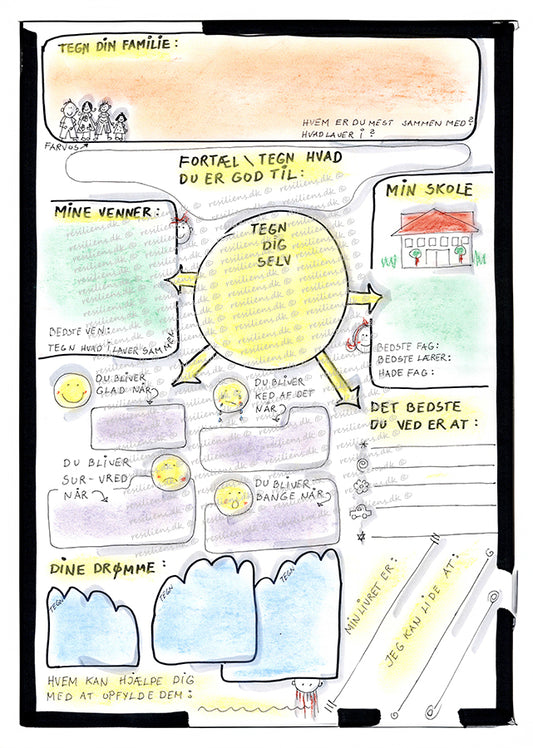 TEGN DIN FAMILIE:
HVEM ER DU MEST SAMMEN MED?
HVAD LAVER I?
FARVOS
FORTÆL \ TEGN HVAD
DU ER GOD TIL:
MINE VENNER:
BEDSTE VEN:
TEGN HVAD I LAVER SAMMEN
TEGN
DIG
SELV
MIN SKOLE
BEDSTE FAG:
BEDSTE LÆRER:
HADE FAG:
DU BLIVER
GLAD NÅR
DU BLIVER
KED AF DET
NÅR
DU BLIVER
SUR-VRED
NÅR
DU BLIVER
BANGE NÅR
DET BEDSTE
DU VED ER AT:
DINE DRØMME:
TEGN
TEGN
TEGN
HVEM KAN HJÆLPE DIG
MED AT UPFYLDE DEM:
MIN LIVRET ER:
JEG KAN LIDE AT:
resiliens.dk ©